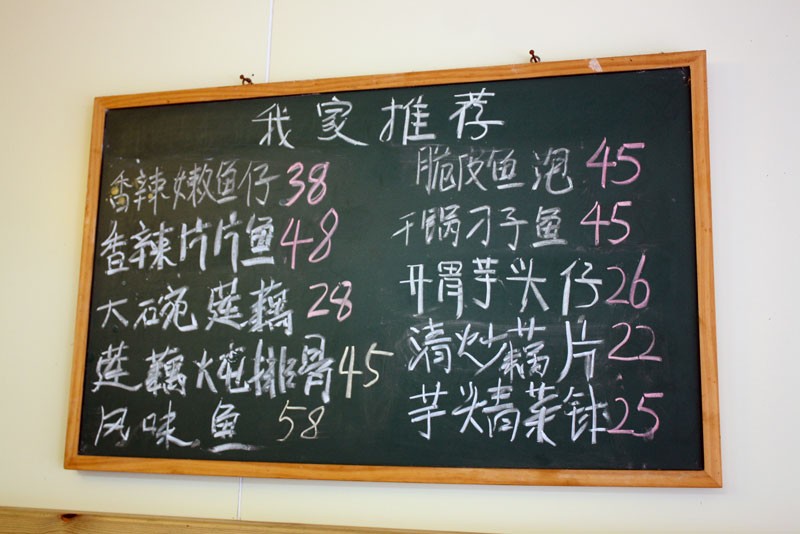 我家推荐
香辣嫩鱼仔38
香辣片片鱼48
大碗莲藕28
莲藕炖排骨45
风味鱼58
脆皮鱼泡45
干锅刁子鱼45
开胃芋头仔26
清炒藕片22
芋头青菜钵25